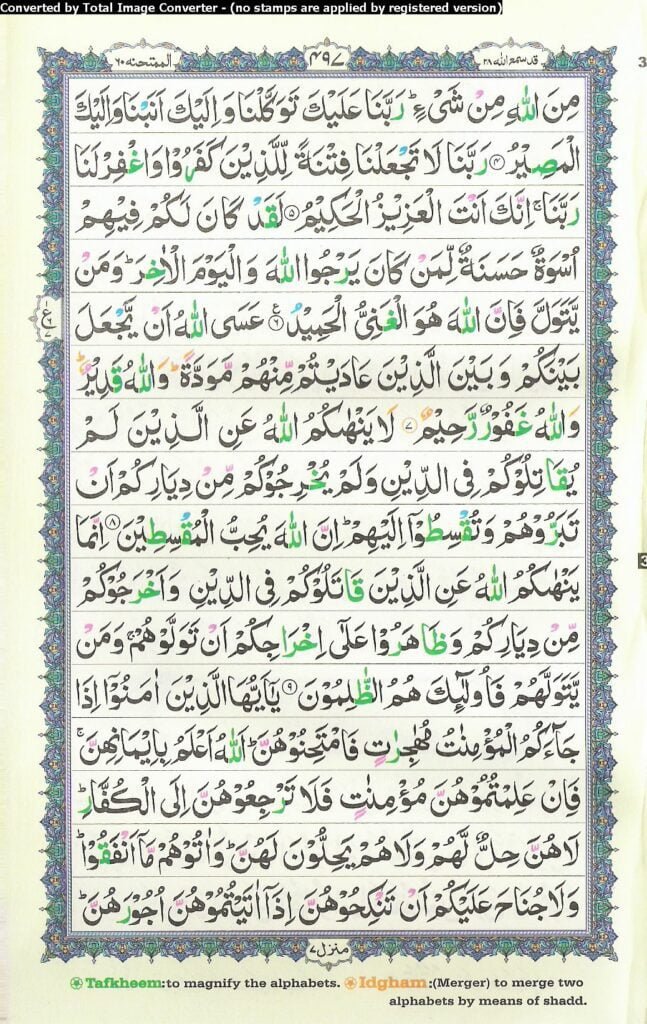 Converted by Total Image Converter - (no stamps are applied by registered version)
قد سمع الله ٢٨
٤٩٧
الممتحنة ٦٠
مِنَ اللّٰهِ مِنْ شَیْءٍ ؕ رَبَّنَا عَلَیْكَ تَوَكَّلْنَا وَ اِلَیْكَ اَنَبْنَا وَ اِلَیْكَ
الْمَصِیْرُ ﴿۴﴾ رَبَّنَا لَا تَجْعَلْنَا فِتْنَةً لِّلَّذِیْنَ كَفَرُوْا وَ اغْفِرْ لَنَا
رَبَّنَا ۚ اِنَّكَ اَنْتَ الْعَزِیْزُ الْحَكِیْمُ ﴿۵﴾ لَقَدْ كَانَ لَكُمْ فِیْهِمْ
اُسْوَةٌ حَسَنَةٌ لِّمَنْ كَانَ یَرْجُوا اللّٰهَ وَ الْیَوْمَ الْاٰخِرَ ؕ وَ مَنْ
یَّتَوَلَّ فَاِنَّ اللّٰهَ هُوَ الْغَنِیُّ الْحَمِیْدُ ﴿۶﴾ عَسَی اللّٰهُ اَنْ یَّجْعَلَ
بَیْنَكُمْ وَ بَیْنَ الَّذِیْنَ عَادَیْتُمْ مِّنْهُمْ مَّوَدَّةً ؕ وَ اللّٰهُ قَدِیْرٌ ؕ
وَ اللّٰهُ غَفُوْرٌ رَّحِیْمٌ ﴿۷﴾ لَا یَنْهٰىكُمُ اللّٰهُ عَنِ الَّذِیْنَ لَمْ
یُقَاتِلُوْكُمْ فِی الدِّیْنِ وَ لَمْ یُخْرِجُوْكُمْ مِّنْ دِیَارِكُمْ اَنْ
تَبَرُّوْهُمْ وَ تُقْسِطُوْۤا اِلَیْهِمْ ؕ اِنَّ اللّٰهَ یُحِبُّ الْمُقْسِطِیْنَ ﴿۸﴾ اِنَّمَا
یَنْهٰىكُمُ اللّٰهُ عَنِ الَّذِیْنَ قَاتَلُوْكُمْ فِی الدِّیْنِ وَ اَخْرَجُوْكُمْ
مِّنْ دِیَارِكُمْ وَ ظَاهَرُوْا عَلٰۤی اِخْرَاجِكُمْ اَنْ تَوَلَّوْهُمْ ۚ وَ مَنْ
یَّتَوَلَّهُمْ فَاُولٰٓىِٕكَ هُمُ الظّٰلِمُوْنَ ﴿۹﴾ یٰۤاَیُّهَا الَّذِیْنَ اٰمَنُوْۤا اِذَا
جَآءَكُمُ الْمُؤْمِنٰتُ مُهٰجِرٰتٍ فَامْتَحِنُوْهُنَّ ؕ اَللّٰهُ اَعْلَمُ بِاِیْمَانِهِنَّ ۚ
فَاِنْ عَلِمْتُمُوْهُنَّ مُؤْمِنٰتٍ فَلَا تَرْجِعُوْهُنَّ اِلَی الْكُفَّارِ ؕ
لَا هُنَّ حِلٌّ لَّهُمْ وَ لَا هُمْ یَحِلُّوْنَ لَهُنَّ ؕ وَ اٰتُوْهُمْ مَّاۤ اَنْفَقُوْا ؕ
وَ لَا جُنَاحَ عَلَیْكُمْ اَنْ تَنْكِحُوْهُنَّ اِذَاۤ اٰتَیْتُمُوْهُنَّ اُجُوْرَهُنَّ ؕ
منزل ٧
Tafkheem:to magnify the alphabets. Idgham:(Merger) to merge two
alphabets by means of shadd.